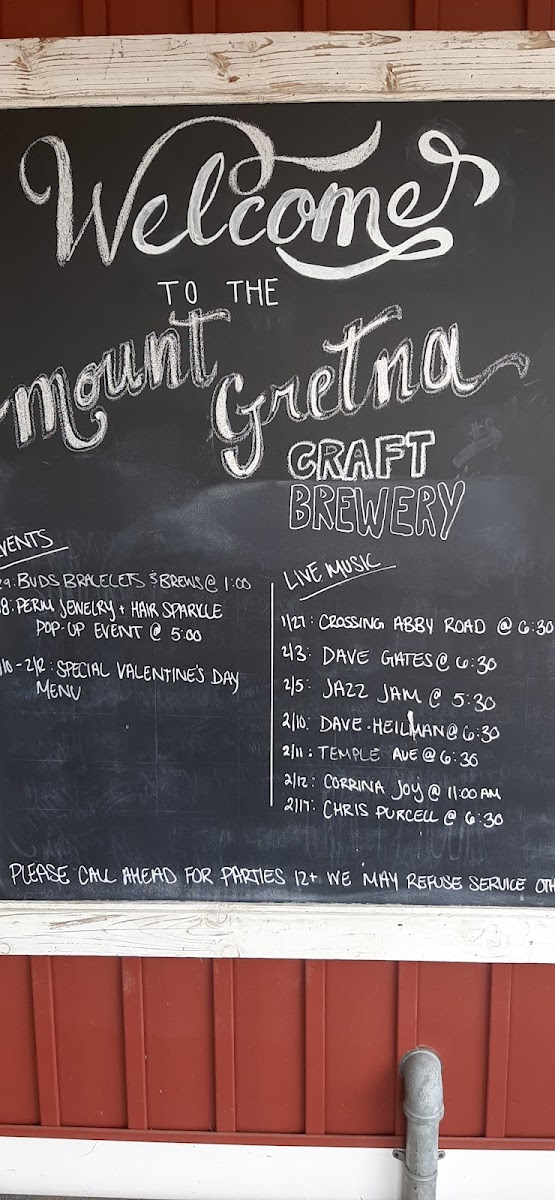 Welcome
TO THE
mount
Gretna
CRAFT
BREWERY
VENTS
29: BUDS BRACELETS & BREWS @ 1:00
8: PERM JEWELRY + HAIR SPARKLE
POP-UP EVENT @ 5:00
/10 - 2/12: SPECIAL VALENTINE'S DAY
MENU
LIVE MUSIC
1/27: CROSSING ABBY ROAD @ 6:30
2/3: DAVE GATES @ 6:30
2/5: JAZZ JAM @ 5:30
2/10: DAVE HEILMAN @ 6:30
2/11: TEMPLE AVE @ 6:30
2/12: CORRINA JOY @ 11:00 AM
2/17: CHRIS PURCELL @ 6:30
PLEASE CALL AHEAD FOR PARTIES 12+ WE MAY REFUSE SERVICE OTH